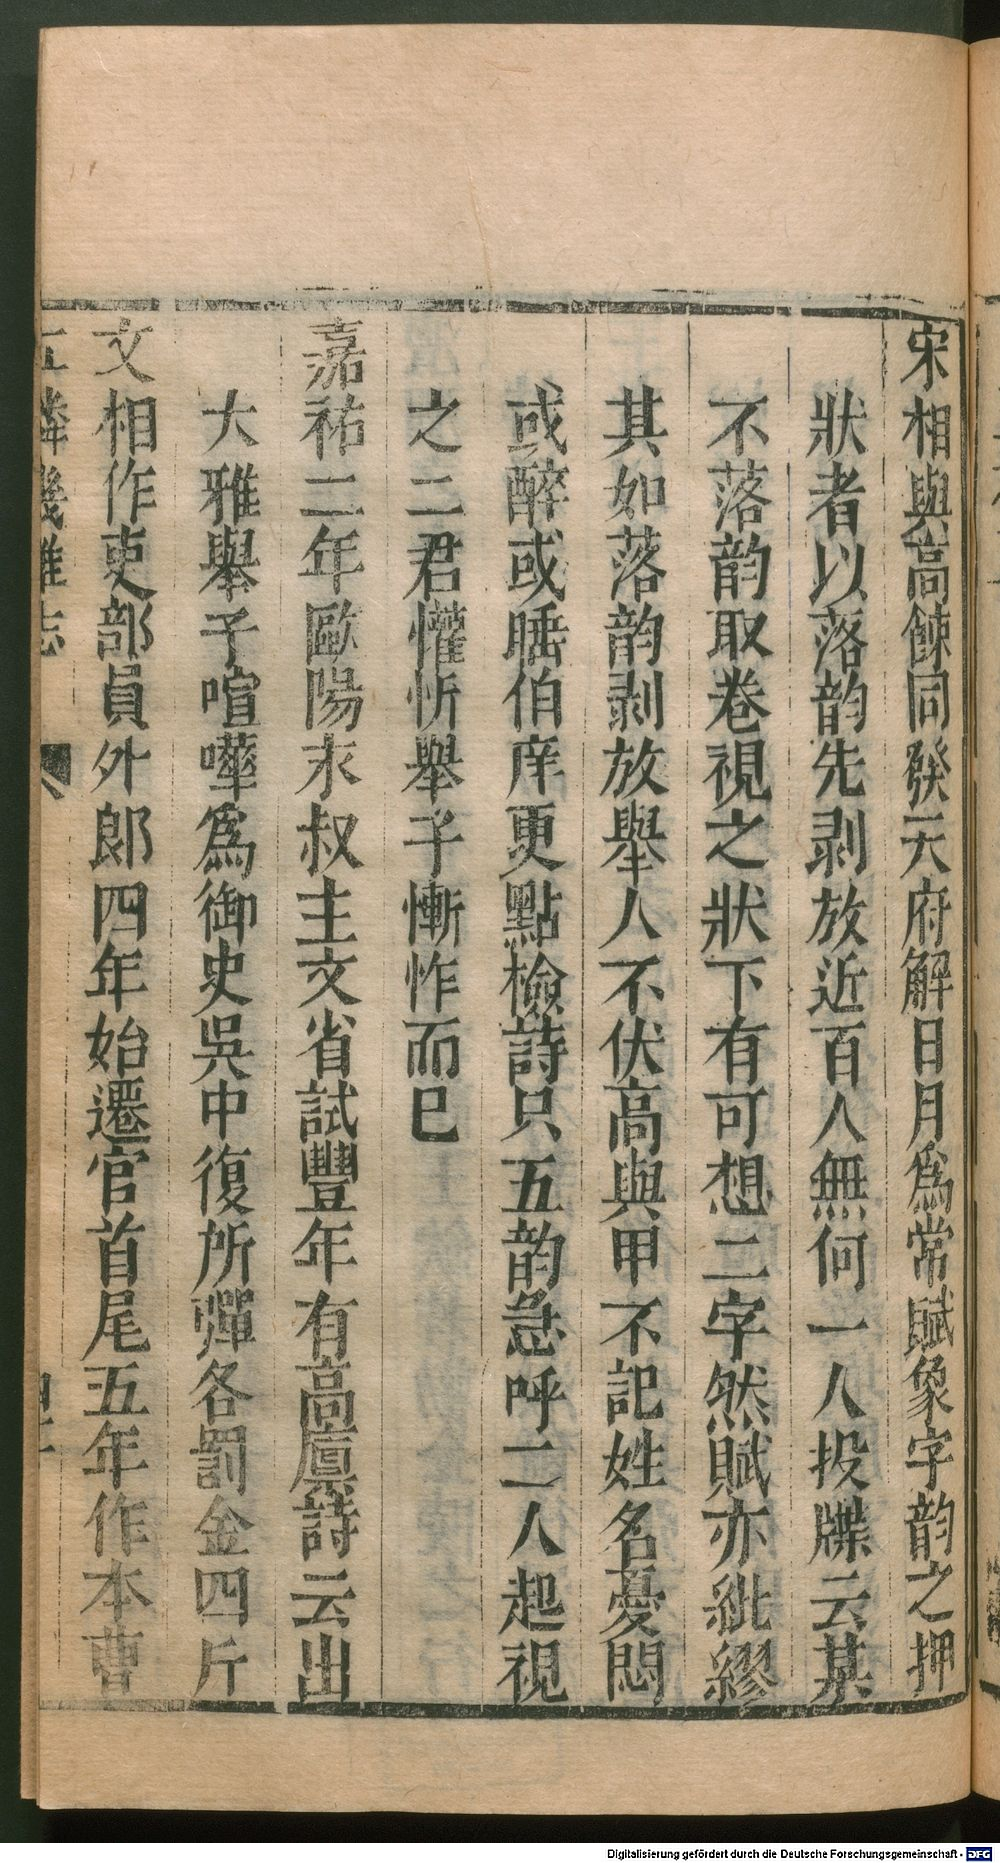 宋相與高餗同發天府解日月爲常賦象字韵之押
狀者以落韵先剥放近百人無何一人投牒云某
不落韵取卷視之狀下有可想二字然賦亦紕繆
其如落韵剥放舉人不伏高與甲不記姓名憂悶
或醉或睡伯庠更點檢詩只五韵急呼二人起視
之二君懽忻舉子慚怍而已
嘉祐二年歐陽永叔主文省試豐年有高廩詩云出
大雅舉子喧嘩爲御史吳中復所彈各罰金四斤
文相作吏部員外郎四年始遷官首尾五年作本曹
江隣幾雜志
Digitalisierung gefördert durch die Deutsche Forschungsgemeinschaft - DFG